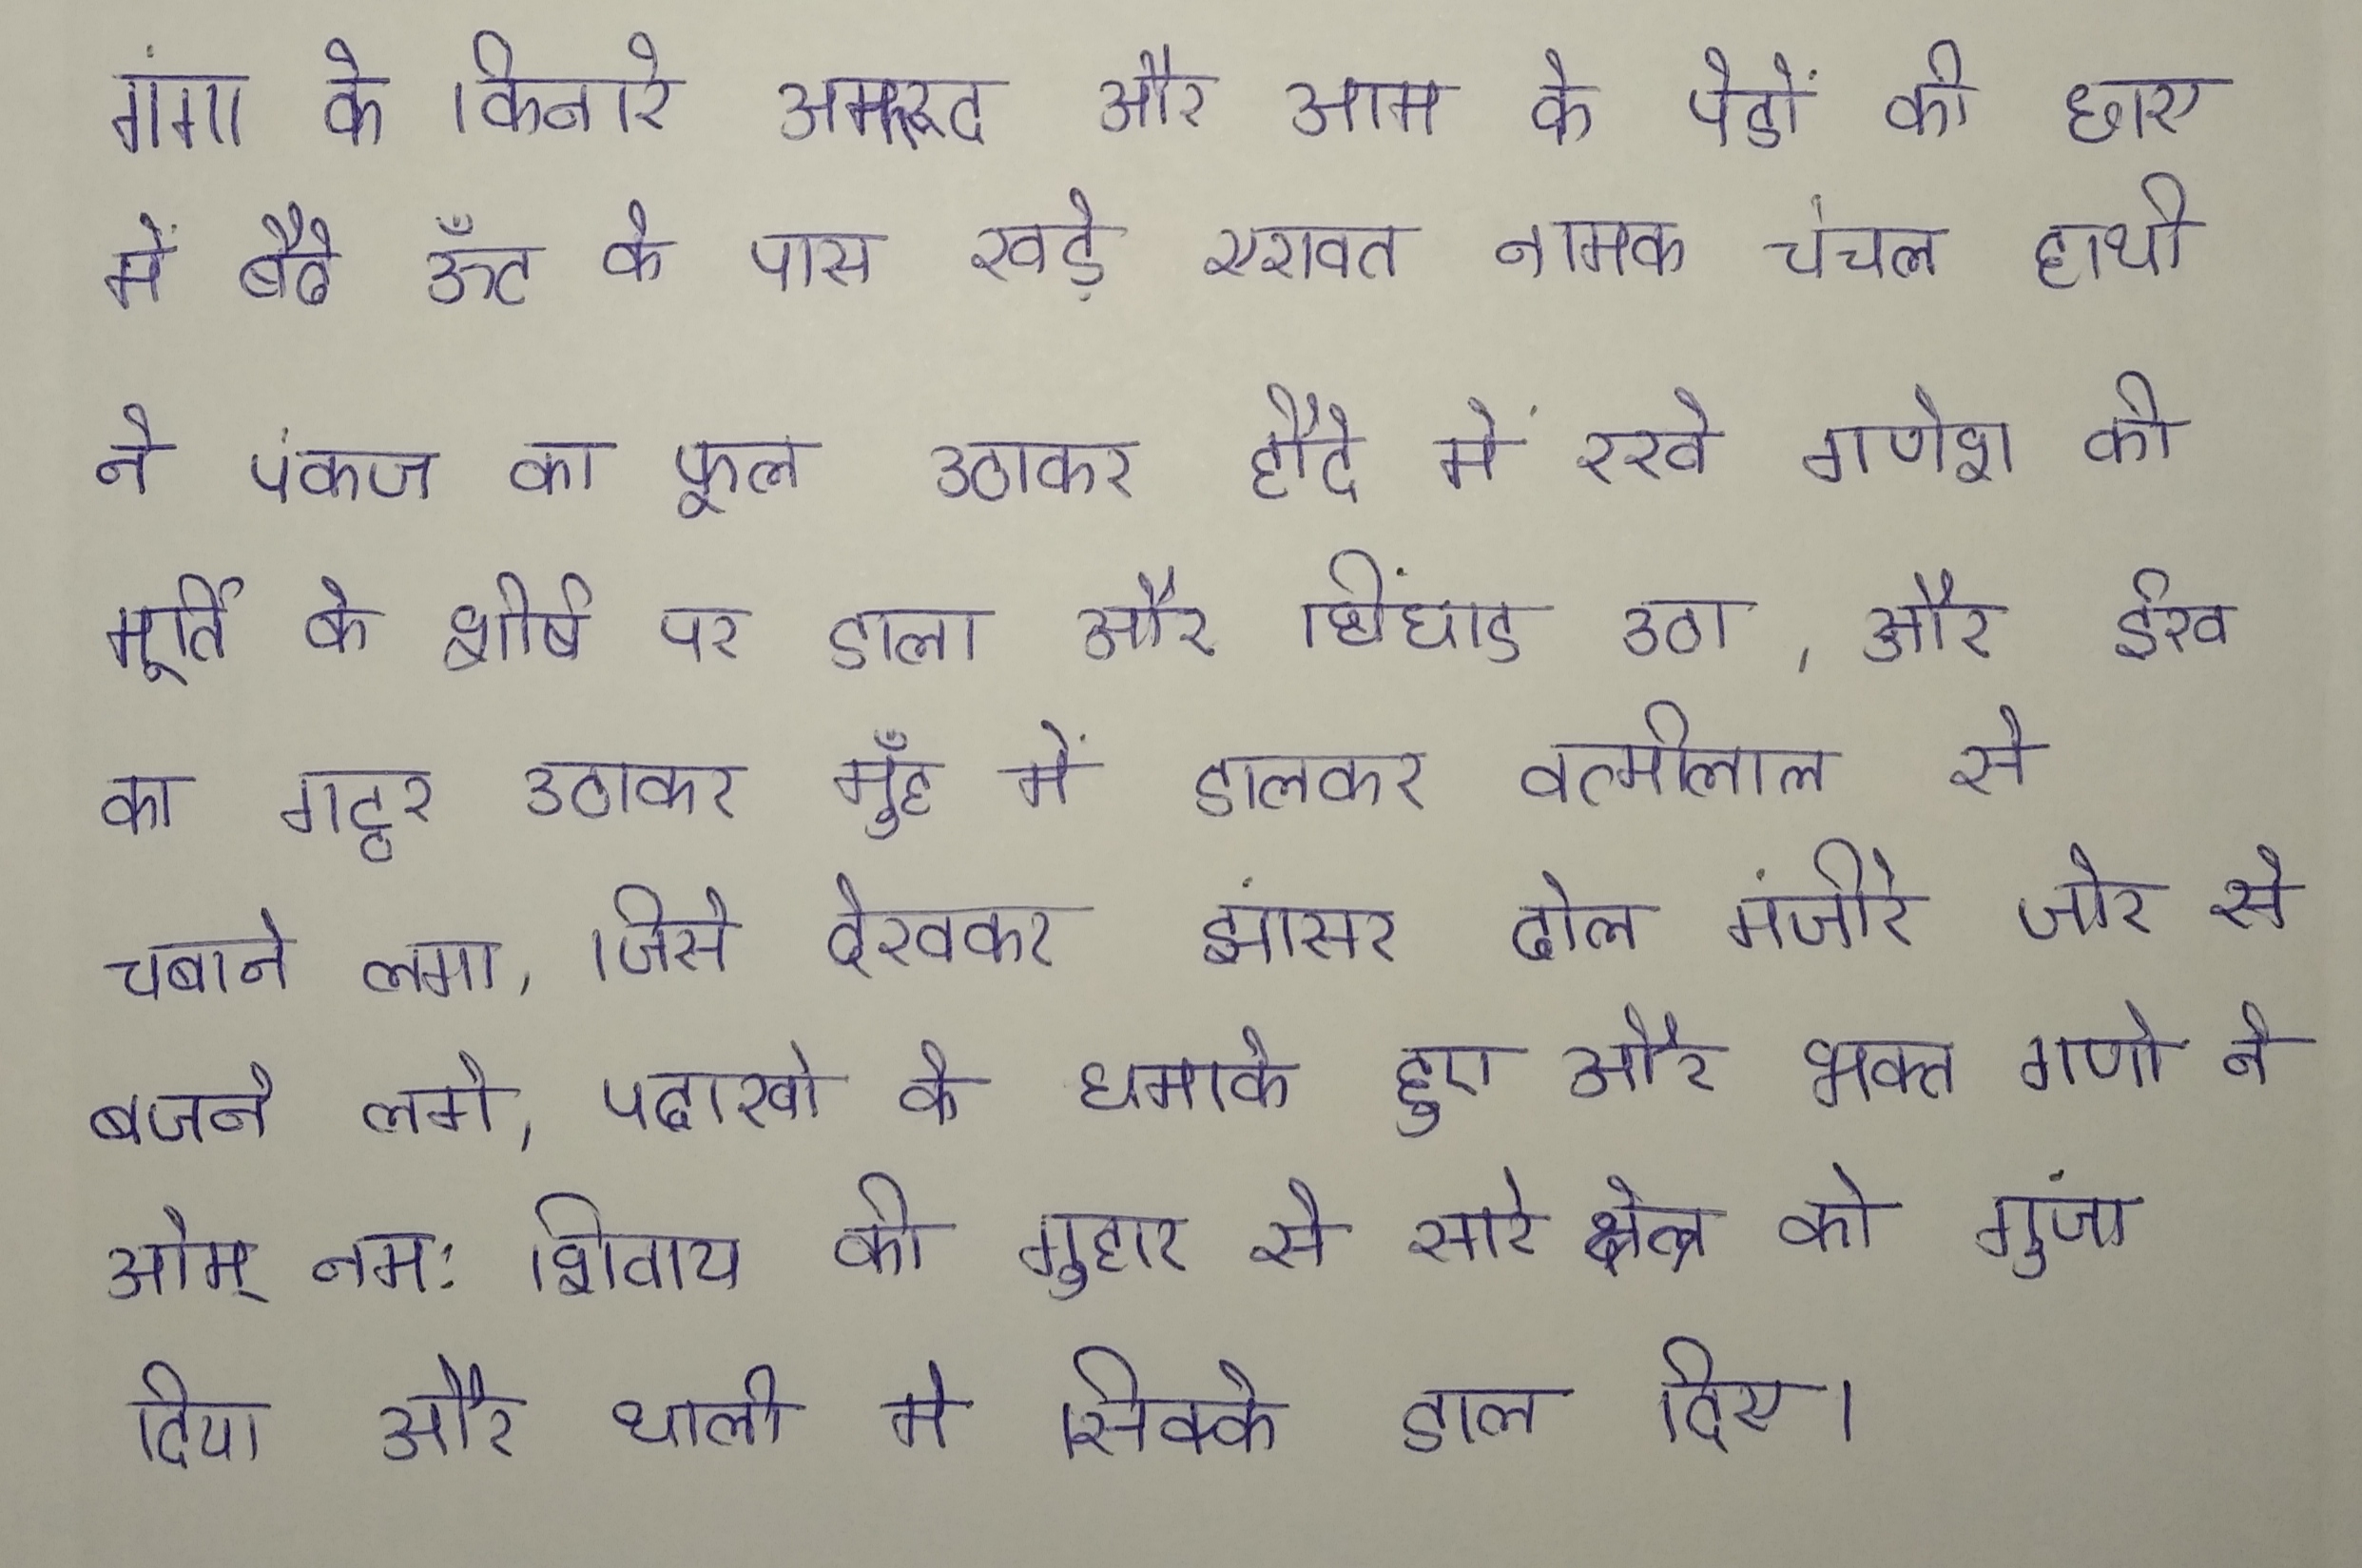 गंगा के किनारे अमरूद और आम के पेडों की छाए
में बैठे ऊँट के पास खड़े एरावत नामक चंचल हाथी
ने पंकज का फूल उठाकर हौदे में रखे गणेश की
मूर्ति के शीर्ष पर डाला और चिंघाड उठा, और ईख
का गट्ठर उठाकर मुँह में डालकर वत्मीलाल से
चबाने लगा, जिसे देखकर झांसर ढोल मंजीरे जोर से
बजने लगे, पटाखो के धमाके हुए और भक्त गणो ने
ओम् नमः शिवाय की गुहार से सारे क्षेत्र को गुंजा
दिया और थाली मे सिक्के डाल दिए।